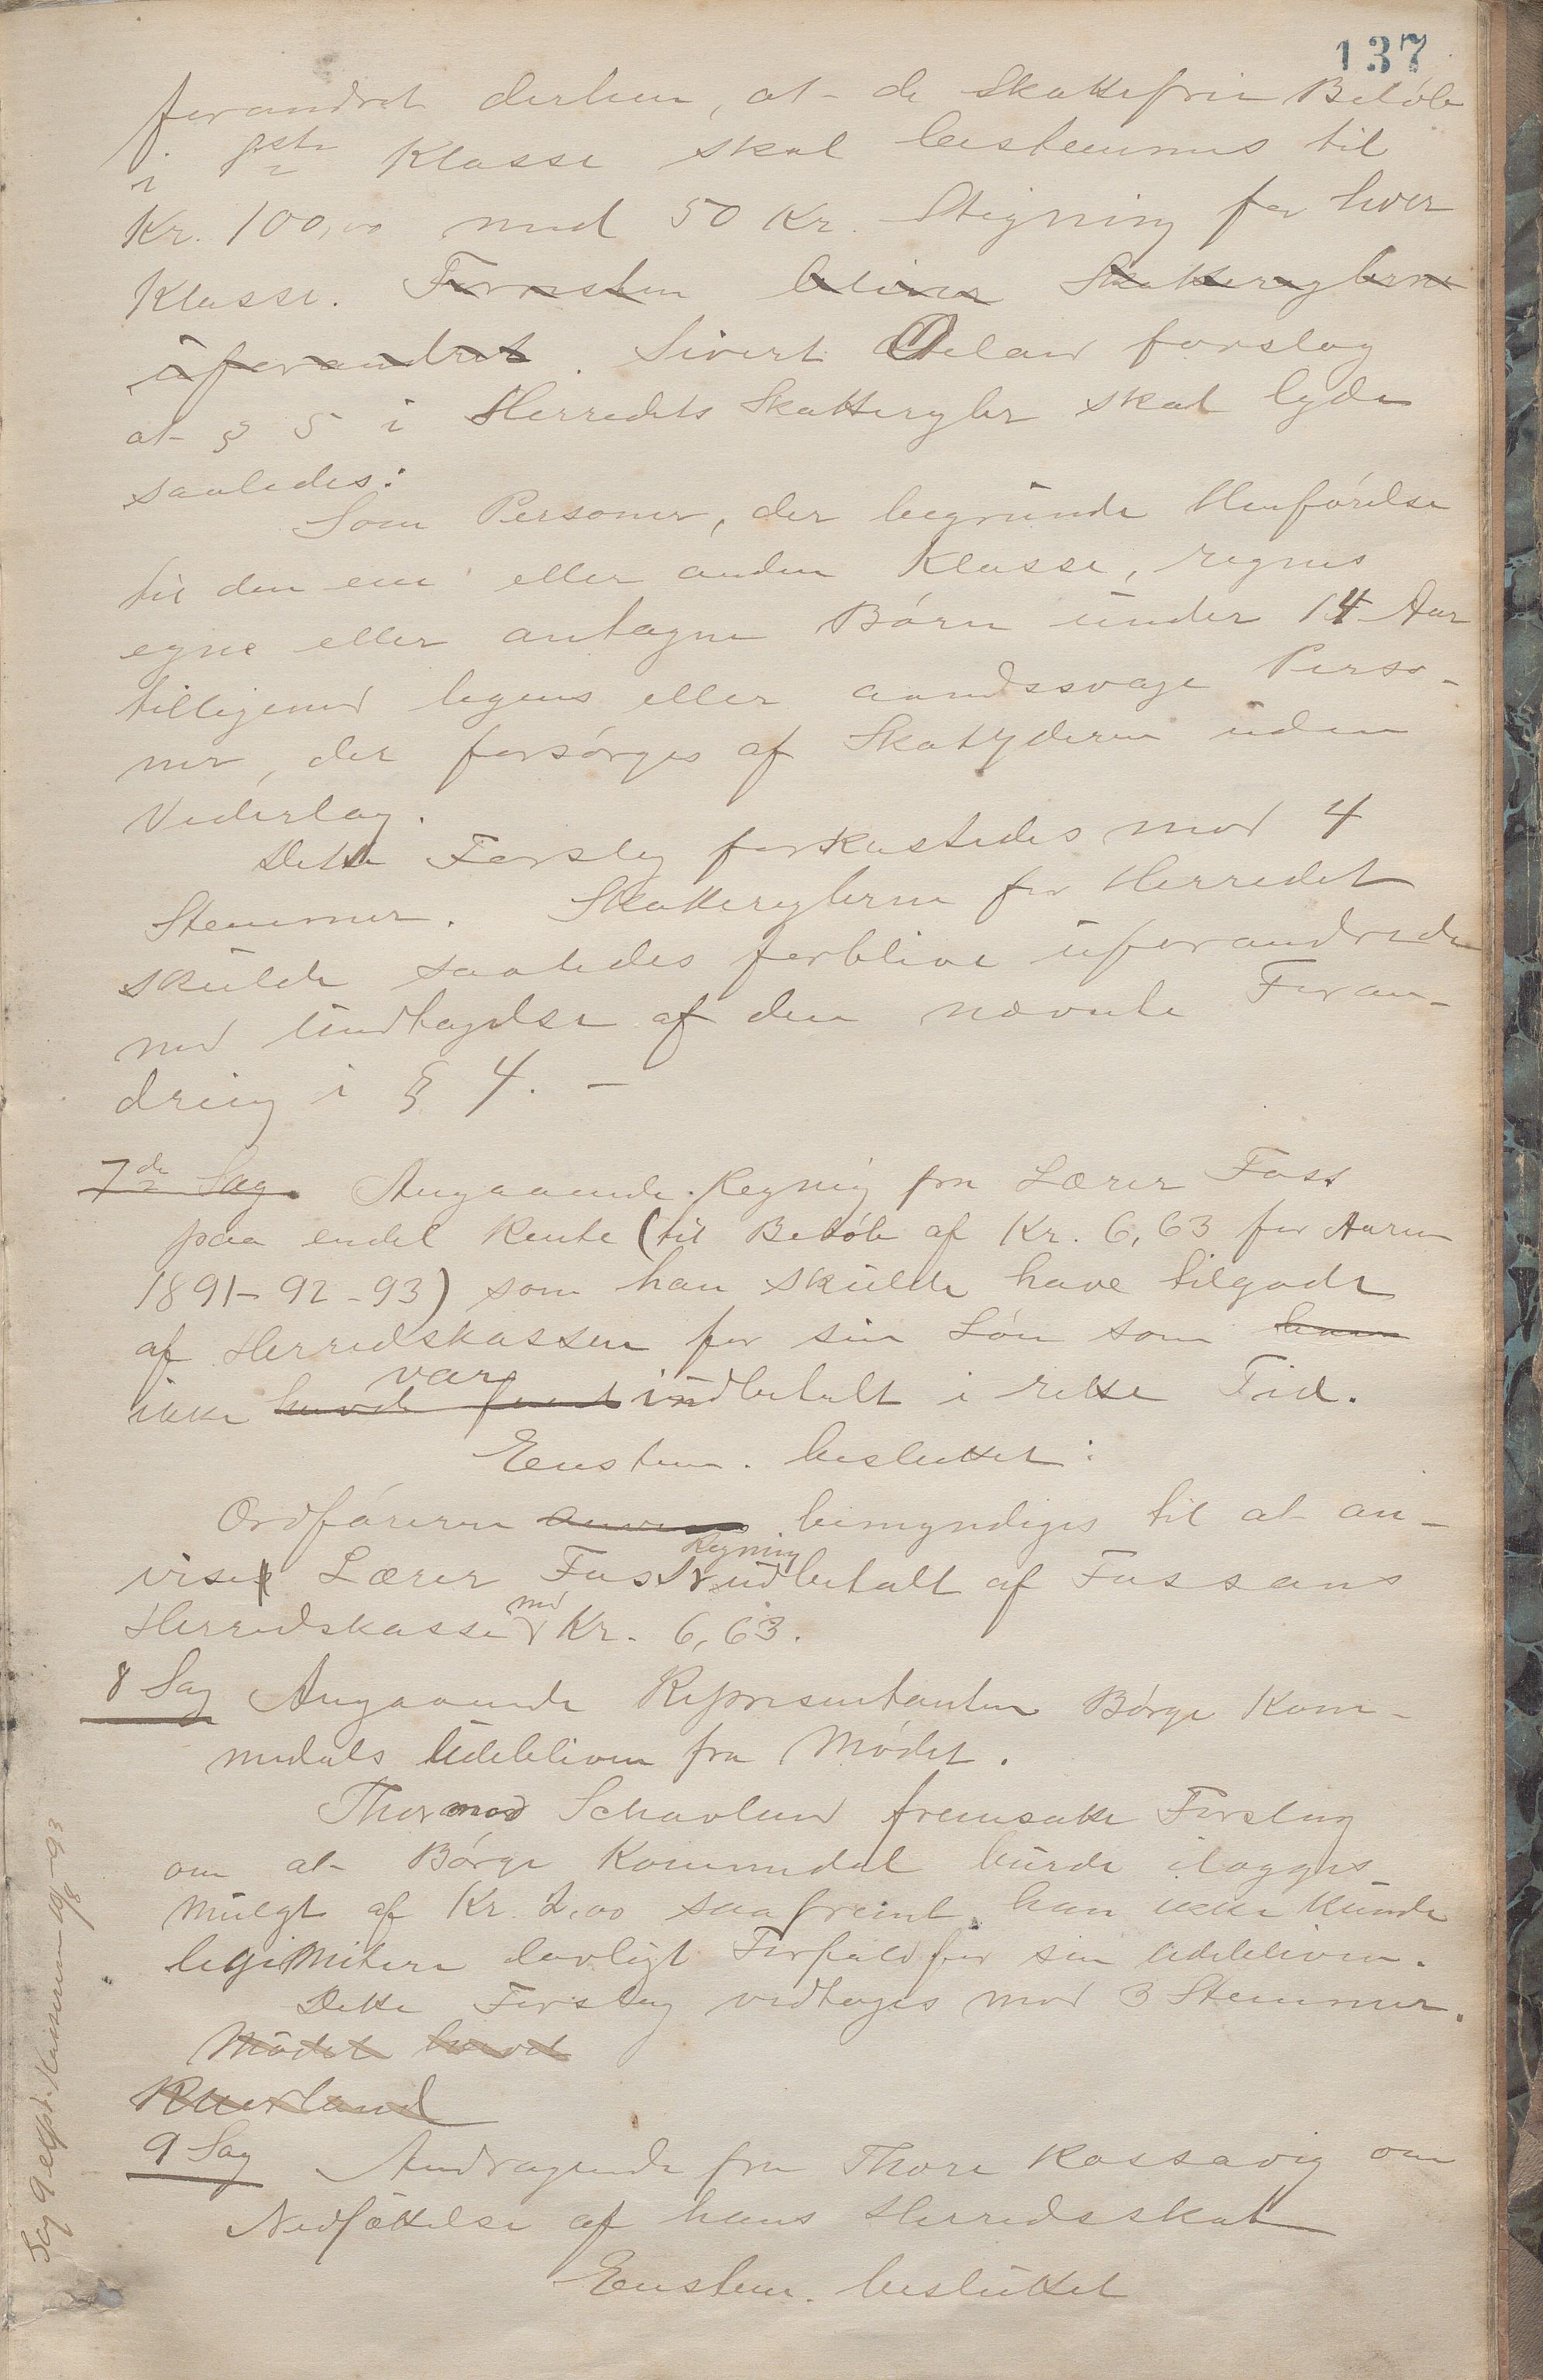 137
forandret derhen, at de skattefrie Beløb
i 1ste Klasse skal bestemmes til
Kr. 100,00 med 50 Kr. Stigning for hver
Klasse. Forresten bliver Skattereglerne
uforandret. Sivert Meland forslog
at § 5 i Herredets Skatteregler skal lyde
saaledes:
Som Personer, der begrunde Henførelse
til den ene eller anden Klasse, regnes
egne eller antagne Børn under 14 Aar
tilligemed legems eller aandssvage Perso-
ner, der forsørges af Skatyderen uden
Vederlag.
Dette Forslag forkastedes mod 4
Stemmer. Skattereglerne for Herredet
skulde saaledes forblive uforandrede
med Undtagelse af den nævnte Foran-
dring i § 4. -
7de Sag. Angaaende Regning fra Lærer Foss
paa endel Rente (til Beløb af Kr. 6,63 for Aarene
1891-92-93) som han skulde have tilgode
af Herredskassen for sin Løn som han
var
ikke havde faaet indbetalt i rette Tid.
Eenstem. besluttet:
Ordføreren bemyndiges til at an-
Regning
vise Lærer Foss's udbetalt af Fossans
med
Herredskasse Kr. 6,63.
8 Sag Angaaende Representanten Børge Kom-
medals Udebliven fra Mødet.
Thormod Schavland fremsatte Forslag
om at Børge Kommedal burde ilægges
Mulgt af Kr. 2,00 saafremt han ikke kunde
legimitere lovligt Forfald for sin Udebliven.
Dette Forslag vedtages mod 3 Stemmer.
Mødet hævet
RHerland
9 Sag Andragende fra Thore Rossavig om
Nedsættelse af hans Herredsskat
Eenstem. besluttet
Sag 9 expt. Kasseren 19/8-93